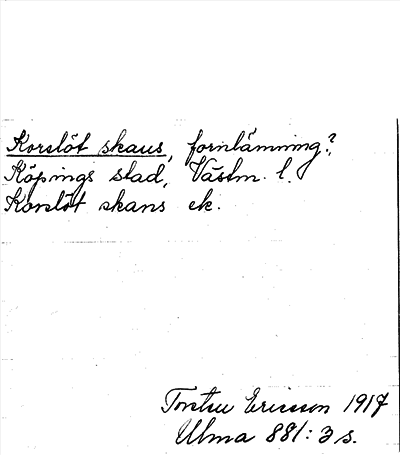 Korslöt skans, fornlämning?,
Köpings stad, Västm. l.
Korslöt skans ek.
Torsten Ericsson 1917
Ulma 881:3 s.